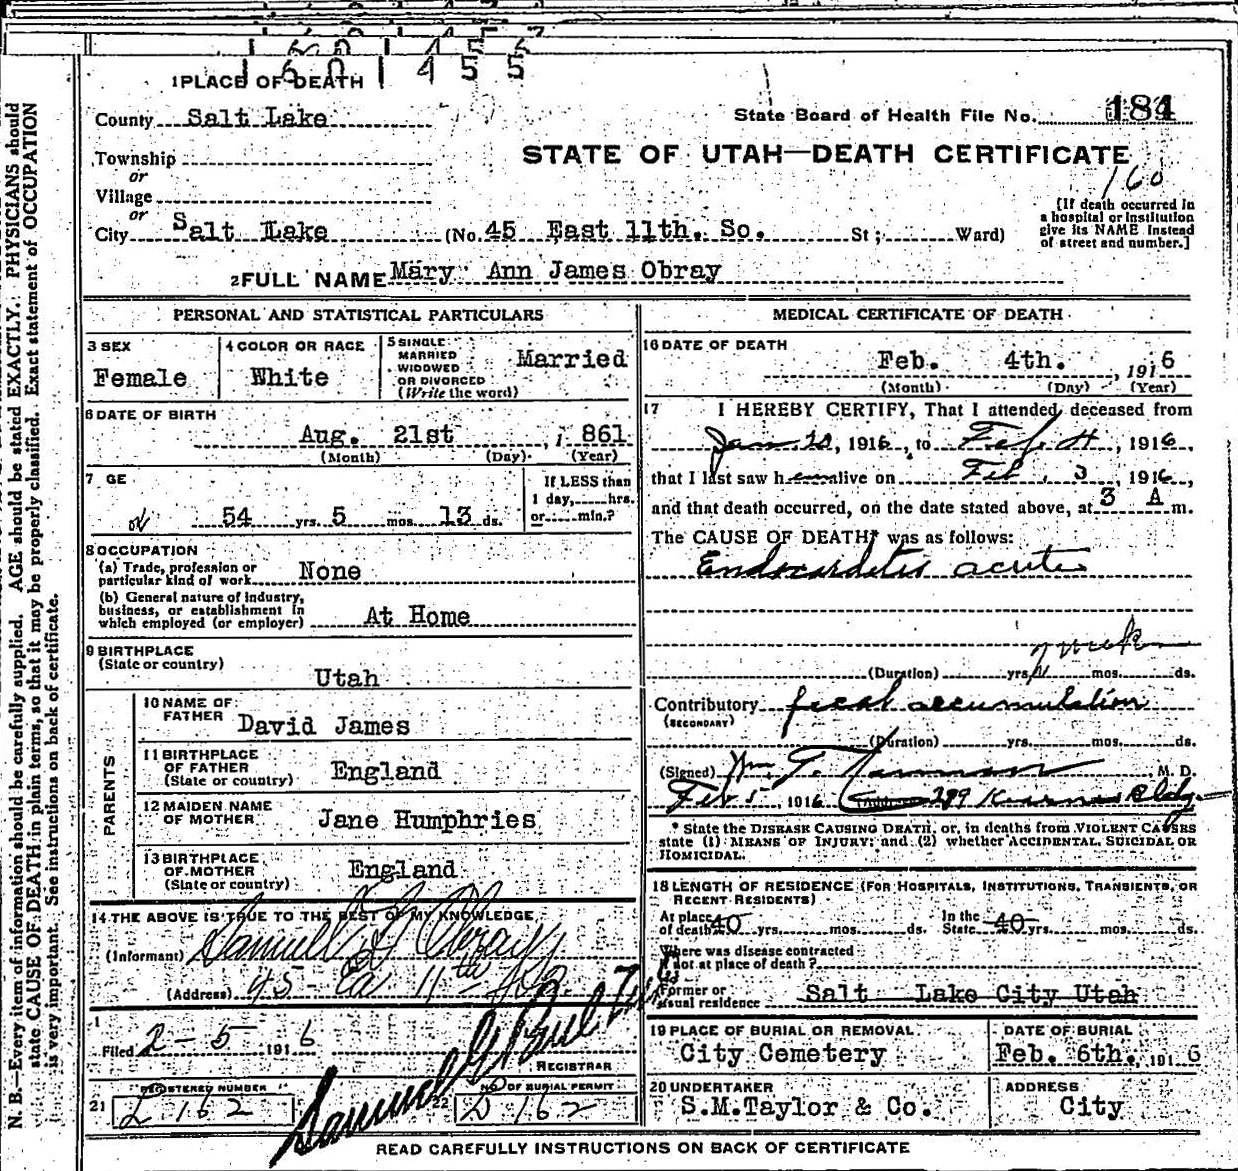 1 PLACE OF DEATH
County Salt Lake
State Board of Health File No. 184
STATE OF UTAH—DEATH CERTIFICATE
160
Township
or
Village
or
City Salt Lake (No. 45 East 11th. So. St; Ward)
[If death occurred in
a hospital or institution
give its NAME instead
of street and number.]
2 FULL NAME Mary Ann James Obray
PERSONAL AND STATISTICAL PARTICULARS
3 SEX
Female
4 COLOR OR RACE
White
5 SINGLE
MARRIED
WIDOWED
OR DIVORCED
(Write the word)
Married
6 DATE OF BIRTH
Aug. 21st , 1 861
(Month) (Day) (Year)
7 GE
54 yrs. 5 mos. 13 ds.
If LESS than
1 day, hrs.
or min.?
8 OCCUPATION
(a) Trade, profession or
particular kind of work None
(b) General nature of industry,
business, or establishment in
which employed (or employer) At Home
9 BIRTHPLACE
(State or country)
Utah
PARENTS
10 NAME OF
FATHER David James
11 BIRTHPLACE
OF FATHER
(State or country) England
12 MAIDEN NAME
OF MOTHER Jane Humphries
13 BIRTHPLACE
OF MOTHER
(State or country) England
14 THE ABOVE IS TRUE TO THE BEST OF MY KNOWLEDGE
(Informant) Samuel Obray
(Address) 45 Ea 11th So.
Filed 2-5 1916
REGISTRAR
REGISTERED NUMBER
21 L 162
NO. OF BURIAL PERMIT
22 D 162
MEDICAL CERTIFICATE OF DEATH
16 DATE OF DEATH
Feb. 4th. , 1916
(Month) (Day) (Year)
17 I HEREBY CERTIFY, That I attended deceased from
Jan 20, 1916, to Feb. 4, 1916
that I last saw h alive on Feb. 3, 1916,
and that death occurred, on the date stated above, at 3 A m.
The CAUSE OF DEATH* was as follows:
Endocarditis acute
(Duration) yrs. mos. ds.
Contributory fecal accumulation
(SECONDARY)
(Duration) yrs. mos. ds.
(Signed) Wm. T. M. D.
Feb 5, 1916 Bldg.
* State the DISEASE CAUSING DEATH, or, in deaths from VIOLENT CAUSES
state (1) MEANS OF INJURY; and (2) whether ACCIDENTAL, SUICIDAL OR
HOMICIDAL.
18 LENGTH OF RESIDENCE (FOR HOSPITALS, INSTITUTIONS, TRANSIENTS, OR
RECENT RESIDENTS)
At place of death 40 yrs. mos. ds. In the State 40 yrs. mos. ds.
Where was disease contracted
if not at place of death?
Former or
usual residence Salt Lake City Utah
19 PLACE OF BURIAL OR REMOVAL
City Cemetery
DATE OF BURIAL
Feb. 6th. 1916
20 UNDERTAKER
S.M.Taylor & Co.
ADDRESS
City
READ CAREFULLY INSTRUCTIONS ON BACK OF CERTIFICATE
N. B.—Every item of information should be carefully supplied. AGE should be stated EXACTLY. PHYSICIANS should
state CAUSE OF DEATH in plain terms, so that it may be properly classified. Exact statement of OCCUPATION
is very important. See instructions on back of certificate.